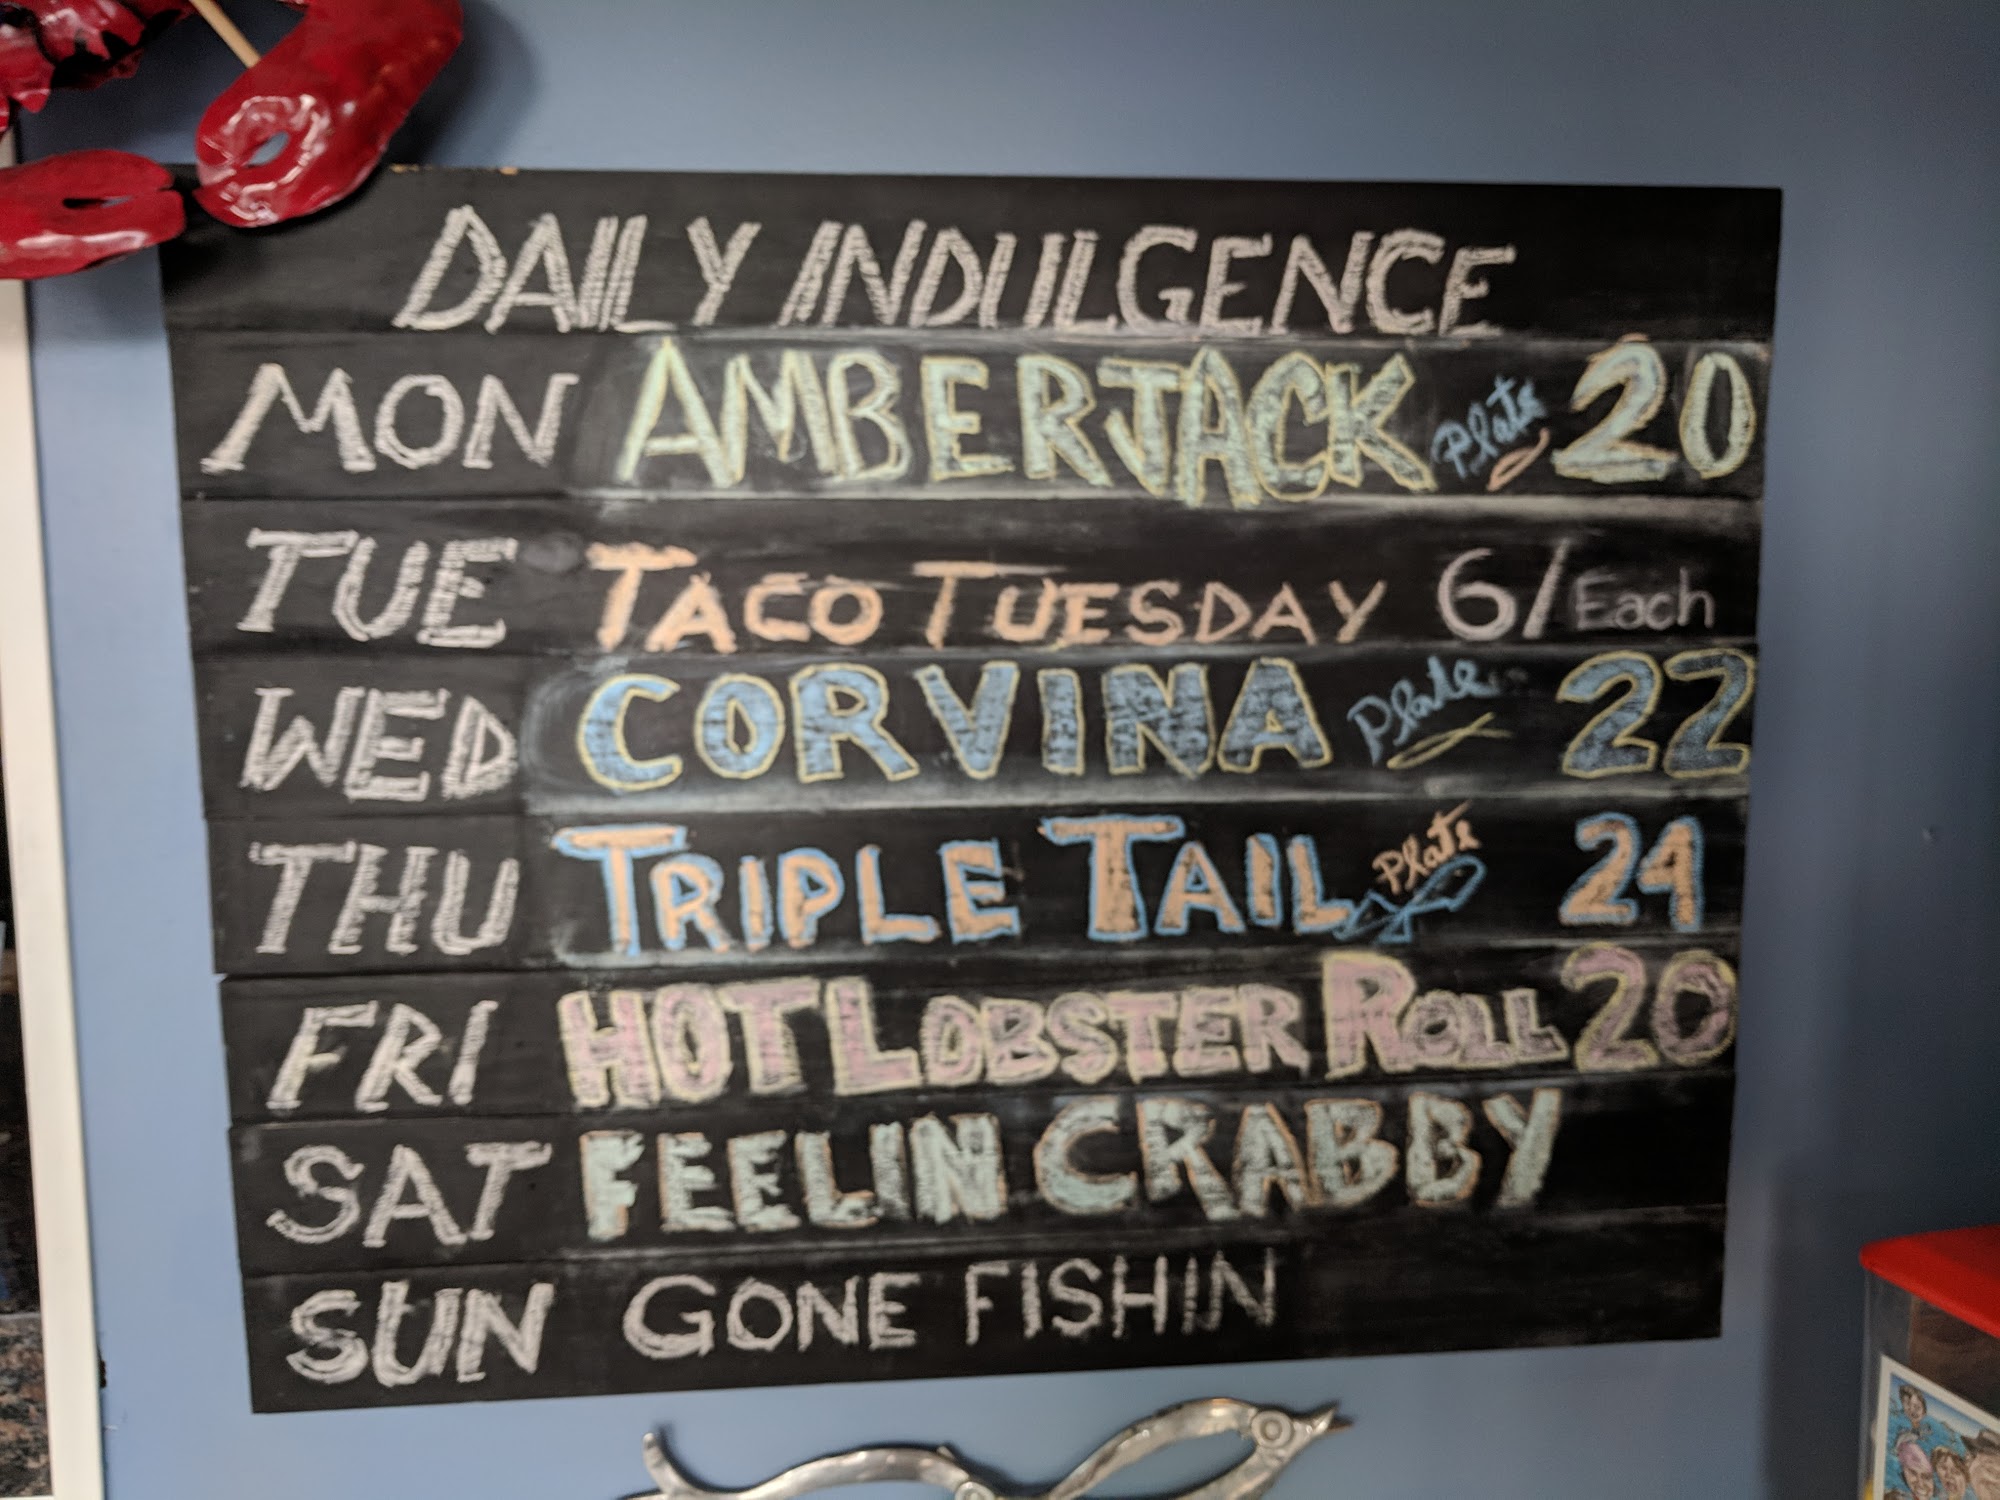 DAILY INDULGENCE
MON AMBERJACK Plate 20
TUE TACO TUESDAY 6/Each
WED CORVINA Plate 22
THU TRIPLE TAIL Plate 24
FRI HOT LOBSTER ROLL 20
SAT FEELIN CRABBY
SUN GONE FISHIN